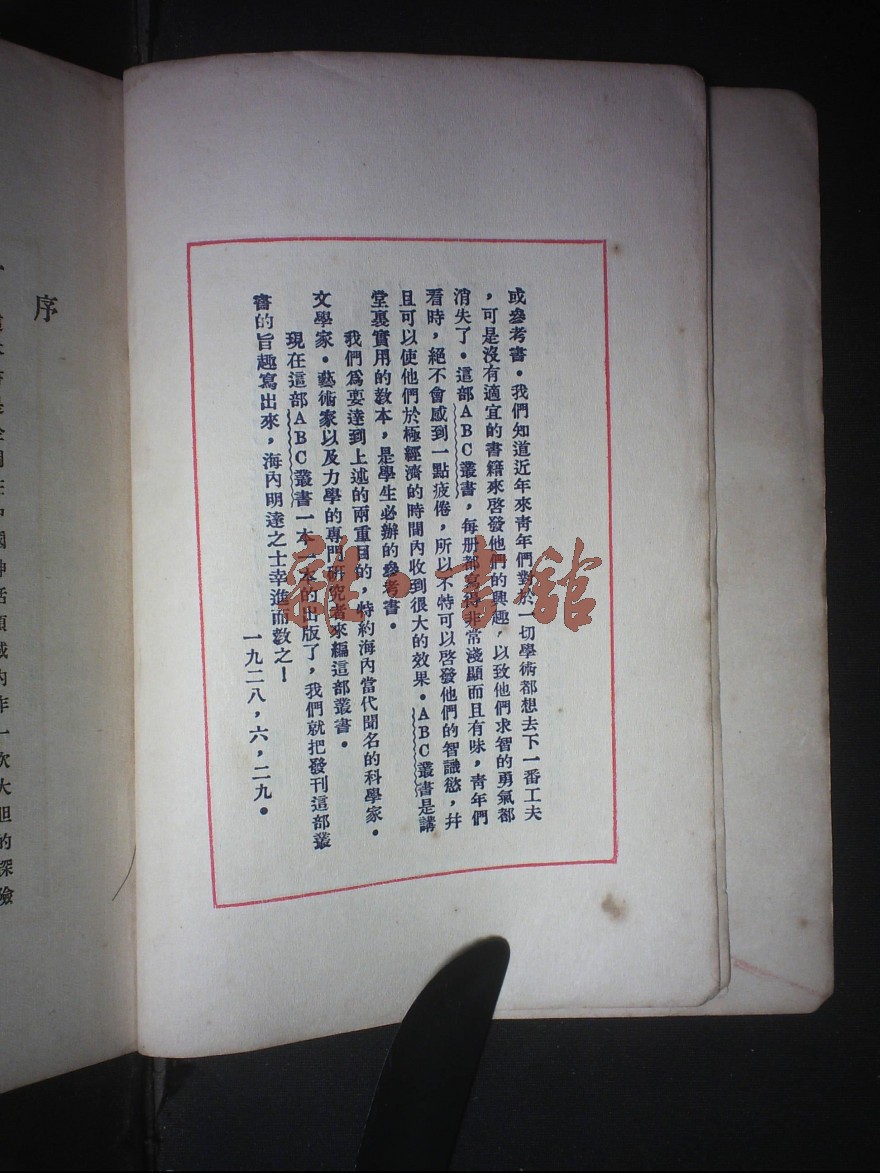 或參考書。我們知道近年來靑年們對於一切學術都想去下一番工夫
，可是沒有適宜的書籍來啓發他們的興趣，以致他們求智的勇氣都
消失了。這部ABC叢書，每册都寫得非常淺顯而且有味，靑年們
看時，絕不會感到一點疲倦，所以不特可以啓發他們的智識慾，幷
且可以使他們於極經濟的時間內收到很大的效果。ABC叢書是講
堂裏實用的敎本，是學生必辦的參考書。
我們爲要達到上述的兩重目的，特約海內當代聞名的科學家。
文學家。藝術家以及力學的專門研究者來編這部叢書。
現在這部ABC叢書一本一本的出版了，我們就把發刊這部叢
書的旨趣寫出來，海內明達之士幸進而敎之！
一九二八，六，二九。
序
神話領域內作一次大胆的探險
雜·書舘